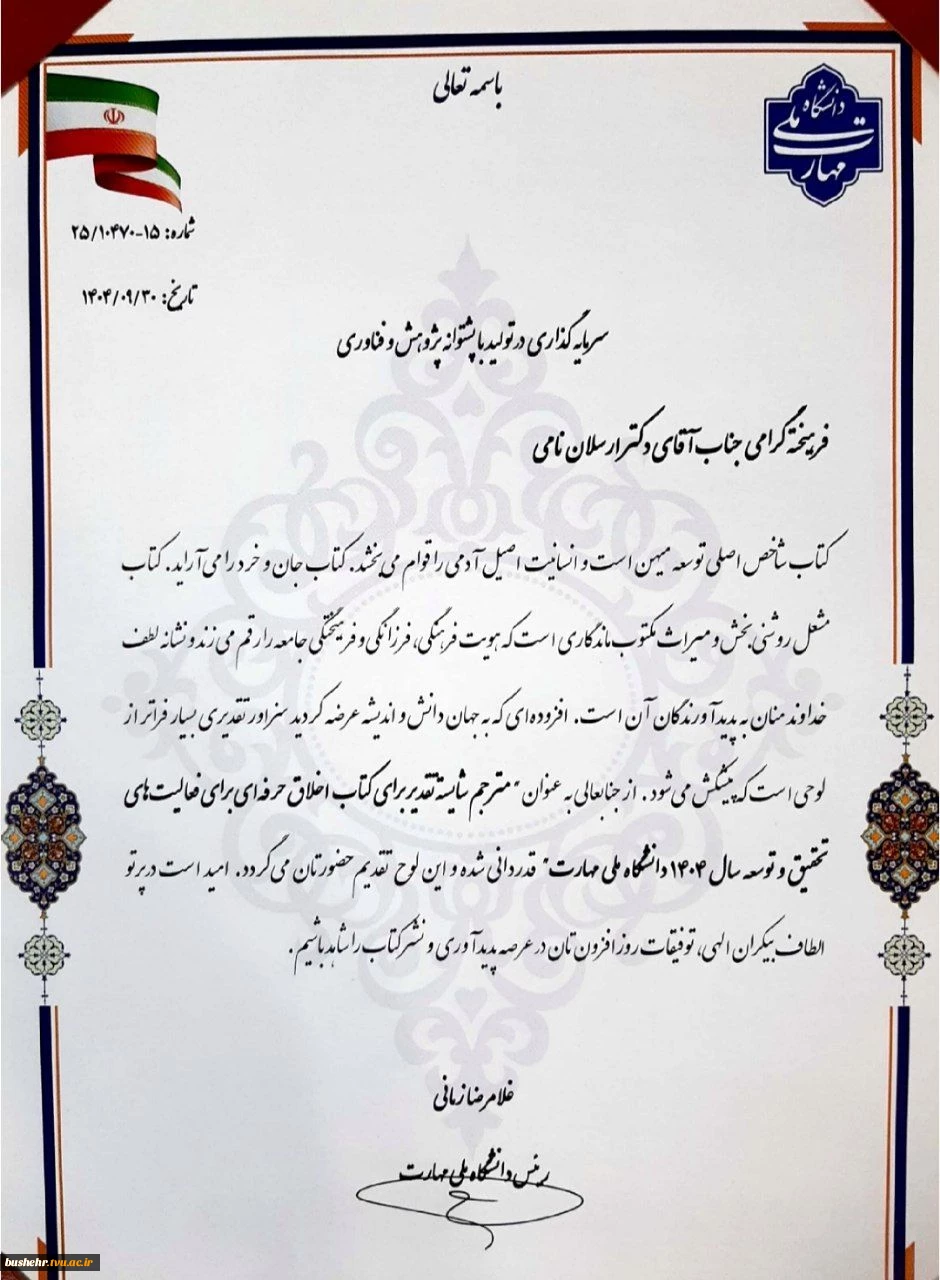 باسمه تعالی
دانشگاه ملی مهارت
شماره: ۱۵-۲۵/۱۰۴۷۰
تاریخ: ۱۴۰۴/۰۹/۳۰
سرمایه گذاری در تولید با پشتوانه پژوهش و فناوری
فرهیخته گرامی جناب آقای دکتر ارسلان نامی
کتاب شاخص اصلی توسعه میهن است و انسانیت اصیل آدمی را قوام می بخشد. کتاب جان و خرد را می آراید. کتاب
مشعل روشنی بخش و میراث مکتوب ماندگاری است که هویت فرهنگی، فرزانگی و فرهیختگی جامعه را رقم می زند و نشانه لطف
خداوند منان به پدیدآورندگان آن است. افزوده‌ای که به جهان دانش و اندیشه عرضه کردید سزاور تقدیری بسیار فراتر از
لوحی است که پیشکش می شود. از جنابعالی به عنوان "مترجم شایسته تقدیر برای کتاب اخلاق حرفه ای برای فعالیت های
تحقیق و توسعه سال ۱۴۰۴ دانشگاه ملی مهارت" قدردانی شده و این لوح تقدیم حضورتان می گردد. امید است در پرتو
الطاف بیکران الهی، توفیقات روز افزون تان در عرصه پدیدآوری و نشر کتاب را شاهد باشیم.
غلامرضا زمانی
رئیس دانشگاه ملی مهارت
bushehr.tvu.ac.ir